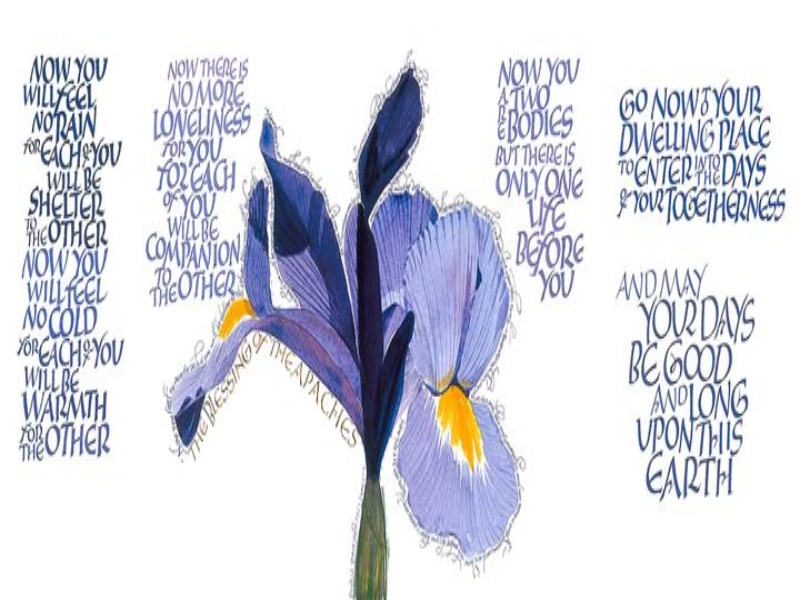 NOW YOU
WILL FEEL
NO RAIN
FOR EACH OF YOU
WILL BE
SHELTER
TO THE OTHER
NOW YOU
WILL FEEL
NO COLD
FOR EACH OF YOU
WILL BE
WARMTH
FOR THE OTHER
NOW THERE IS
NO MORE
LONELINESS
FOR YOU
FOR EACH
OF YOU
WILL BE
COMPANION
TO THE OTHER
NOW YOU
ARE TWO
BODIES
BUT THERE IS
ONLY ONE
LIFE
BEFORE
YOU
GO NOW TO YOUR
DWELLING PLACE
TO ENTER INTO THE DAYS
OF YOUR TOGETHERNESS
AND MAY
YOUR DAYS
BE GOOD
AND LONG
UPON THIS
EARTH
THE BLESSING OF THE APACHES